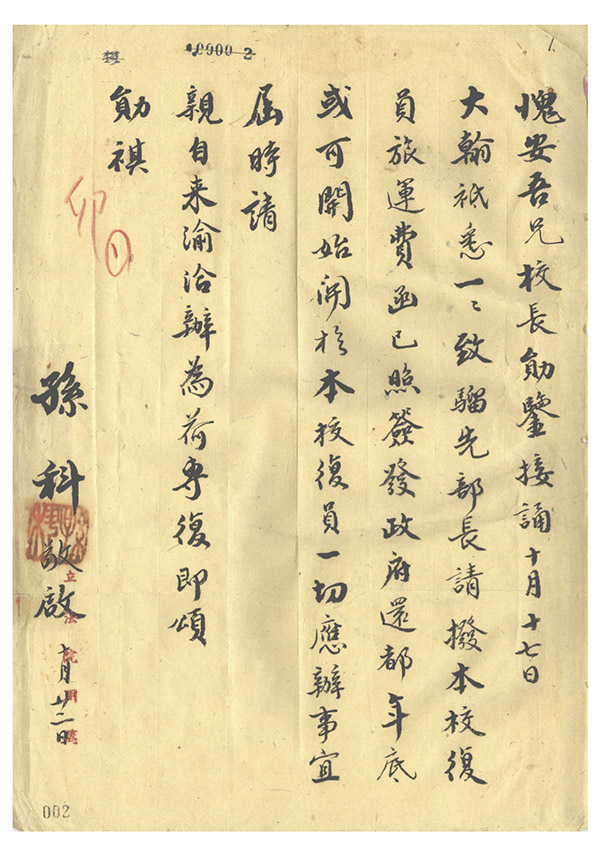 愧安吾兄校長勛鑒接誦十月十七日
大翰祇悉一〻致騮先部長請撥本校復
員旅運費函已照簽發政府還都年底
或可開始關於本校復員一切應辦事宜
屆時請
親自来渝洽辦為荷專復即頌
勛祺
孫科敬啟 十月廿二日
立法院用箋
002